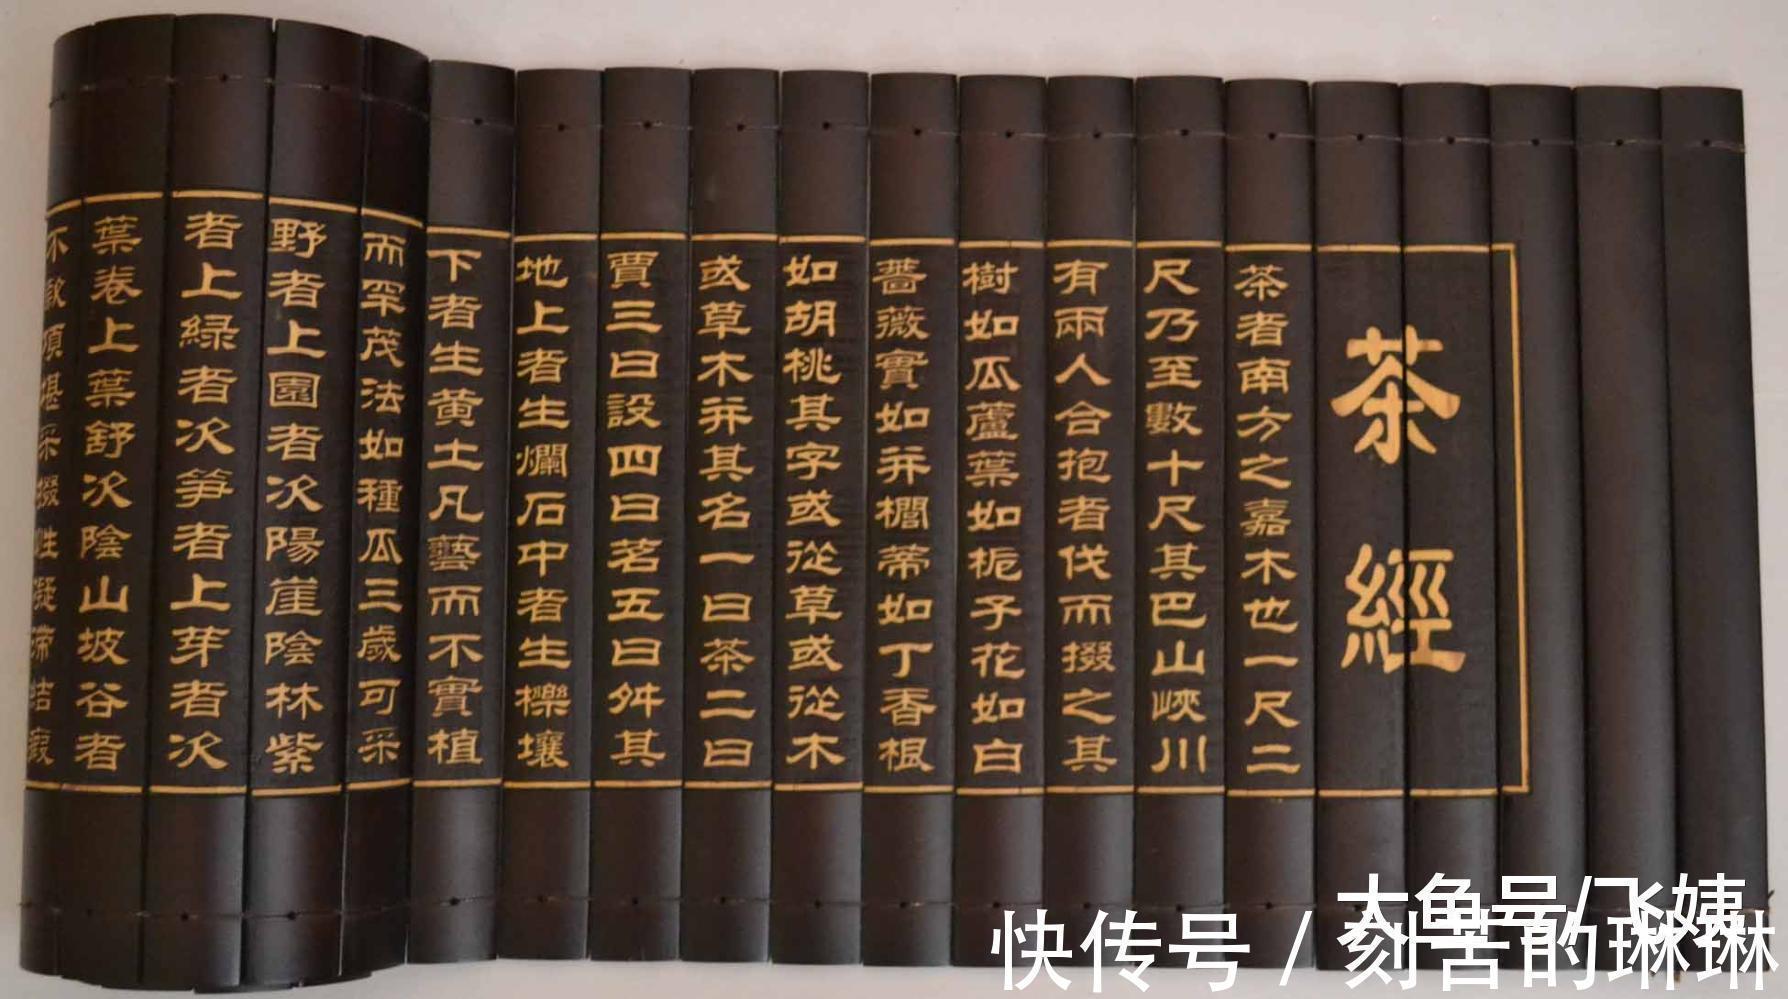 茶經
茶者南方之嘉木也一尺二
尺乃至數十尺其巴山峽川
有兩人合抱者伐而掇之其
樹如瓜蘆葉如梔子花如白
薔薇實如并櫚蒂如丁香根
如胡桃其字或從草或從木
或草木并其名一曰茶二曰
賈三曰設四曰茗五曰舛其
地上者生爛石中者生櫟壤
下者生黄土凡藝而不實植
而罕茂法如種瓜三歲可采
野者上園者次陽崖陰林紫
者上緑者次笋者上芽者次
葉卷上葉舒次陰山坡谷者
不堪采掇性凝滯結瘕
大鱼号/飞姨
快传号 / 刻苦的琳琳